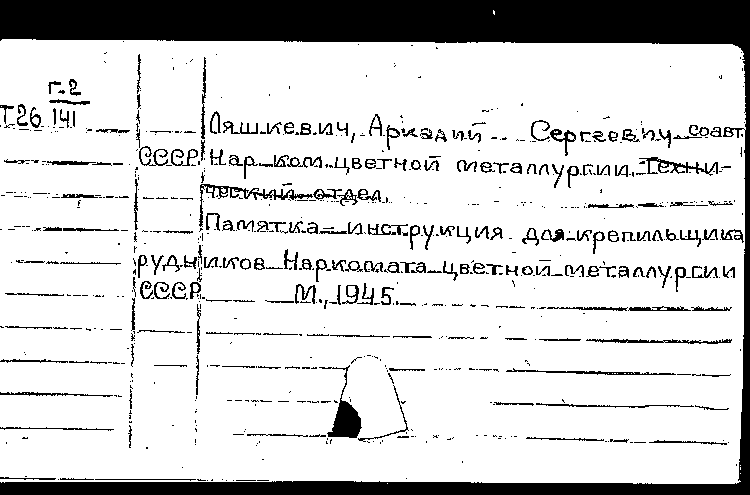 Г.2
Т26 141
Ляшкевич, Аркадий Сергеевич соавт.
СССР. Нар. ком. цветной металлургии. Техни-
ческий отдел.
Памятка-инструкция для крепильщика
рудников Наркомата цветной металлургии
СССР. М., 1945.